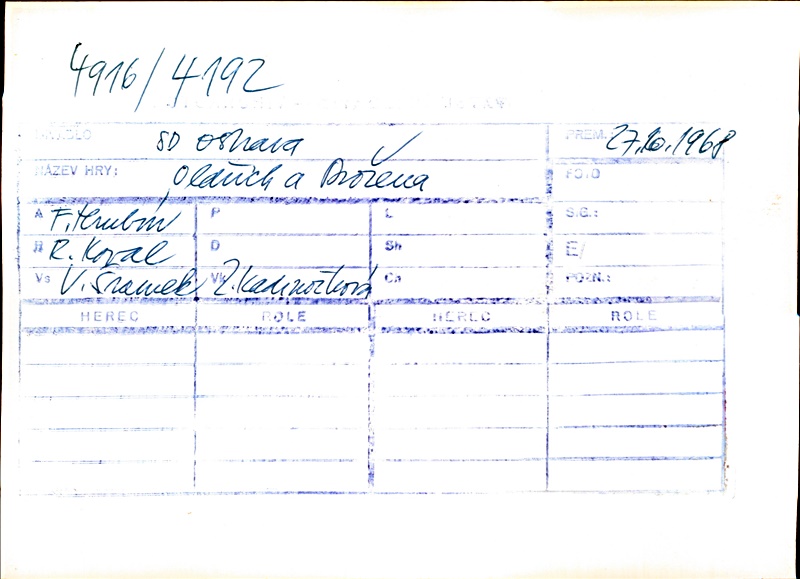 4916/4192
DIVADLO SD Ostrava PREM. 27.10.1968
NÁZEV HRY: Oldřich a Božena FOTO
A F. Hrubín P L S.G.:
R R. Koval D Sh E/
Vs V. Šramek Vk Z. Kadrnožková Ca POZN.:
HEREC ROLE HEREC ROLE